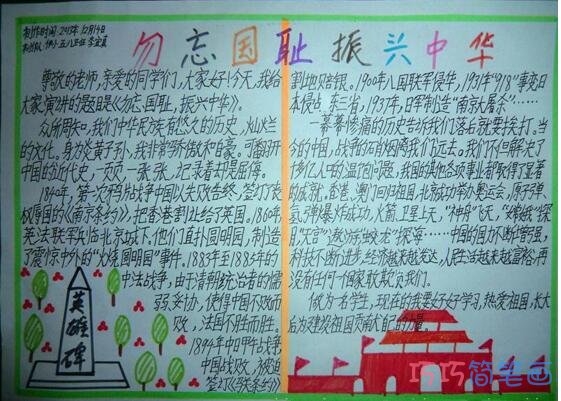 制作时间:2015年12月14日
勿忘国耻 振兴中华
尊敬的老师,亲爱的同学们,大家好!今天,我给
大家演讲的题目是《勿忘国耻,振兴中华》。
众所周知,我们中华民族有悠久的历史,灿烂
的文化。身为炎黄子孙,我非常骄傲和自豪。可翻开
中国的近代史,一页一页,一张一张,记录着却是屈辱。
1840年,第一次鸦片战争中国以失败告终,签订丧
权辱国的《南京条约》,把香港割让给了英国,1860年,
英法联军兵临北京城下。他们直扑圆明园,制造
了震惊中外的"火烧圆明园"事件。1883年至1885年的
中法战争,由于清朝统治者的懦
弱妥协,使得中国不败而
败,法国不胜而胜。
1894年中日甲午战争
中国战败,被迫
签订《马关条约》
割地赔银。1900年八国联军侵华,1931年"918"事变日
本侵占东三省,1937年,日军制造"南京大屠杀"……
一幕幕惨痛的历史告诉我们落后就要挨打。当
今的中国,战争的硝烟离我们远去。我们不但解决了
十多亿人口的温饱问题,我国的其他各项事业都取得显著
的成就。香港、澳门回归祖国,北京成功举办奥运会,原子弹、
氢弹爆炸成功,火箭、卫星上天,"神舟"飞天,"嫦娥"探
月"天宫"遨游"蛟龙"探海……中国的国力不断增强,
科技不断进步,经济越来越发达,人民生活越来越富裕,再
没有任何一个国家敢欺负我们。
做为一名学生,现在的我要好好学习,热爱祖国,长大
后为建设祖国贡献自己的力量。
英雄碑
巧巧简笔画